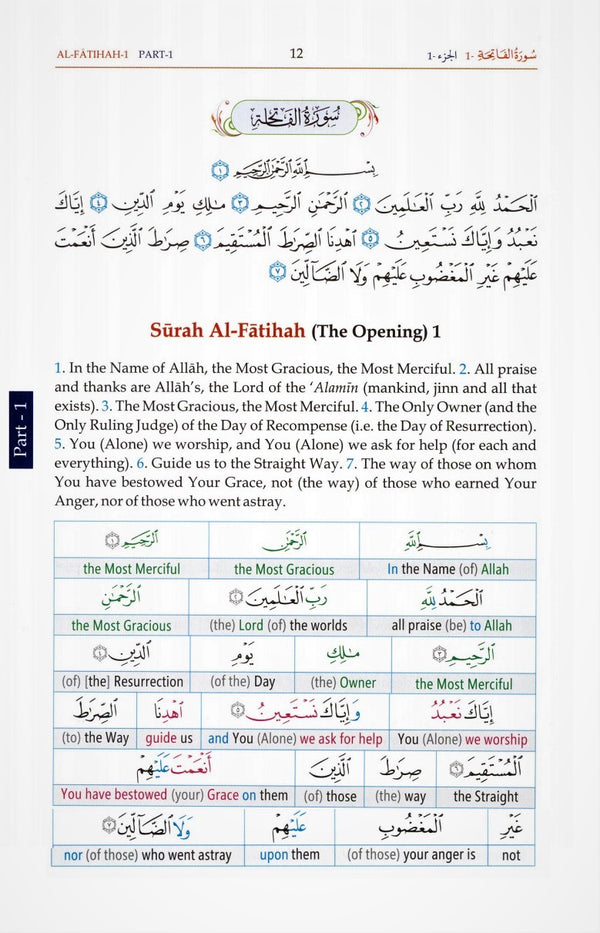 AL-FĀTIHAH-1 PART-1 12 الجزء -1 سُورَةُ الفَاتِحَةِ -1
سُورَةُ الفَاتِحَةِ
بِسْمِ ٱللَّهِ ٱلرَّحْمَٰنِ ٱلرَّحِيمِ ۝١
ٱلْحَمْدُ لِلَّهِ رَبِّ ٱلْعَـٰلَمِينَ ۝٢ ٱلرَّحْمَـٰنِ ٱلرَّحِيمِ ۝٣ مَـٰلِكِ يَوْمِ ٱلدِّينِ ۝٤ إِيَّاكَ
نَعْبُدُ وَإِيَّاكَ نَسْتَعِينُ ۝٥ ٱهْدِنَا ٱلصِّرَٰطَ ٱلْمُسْتَقِيمَ ۝٦ صِرَٰطَ ٱلَّذِينَ أَنْعَمْتَ
عَلَيْهِمْ غَيْرِ ٱلْمَغْضُوبِ عَلَيْهِمْ وَلَا ٱلضَّآلِّينَ ۝٧
Sūrah Al-Fātihah (The Opening) 1
1. In the Name of Allāh, the Most Gracious, the Most Merciful. 2. All praise
and thanks are Allāh's, the Lord of the ‘Alamīn (mankind, jinn and all that
exists). 3. The Most Gracious, the Most Merciful. 4. The Only Owner (and the
Only Ruling Judge) of the Day of Recompense (i.e. the Day of Resurrection).
5. You (Alone) we worship, and You (Alone) we ask for help (for each and
everything). 6. Guide us to the Straight Way. 7. The way of those on whom
You have bestowed Your Grace, not (the way) of those who earned Your
Anger, nor of those who went astray.
Part - 1
بِسْمِ ٱللَّهِ ٱلرَّحْمَٰنِ ٱلرَّحِيمِ ۝١
the Most Merciful the Most Gracious In the Name (of) Allah
ٱلْحَمْدُ لِلَّهِ رَبِّ ٱلْعَـٰلَمِينَ ۝٢ ٱلرَّحْمَـٰنِ
the Most Gracious (the) Lord (of) the worlds all praise (be) to Allah
ٱلرَّحِيمِ ۝٣ مَـٰلِكِ يَوْمِ ٱلدِّينِ ۝٤
(of) [the] Resurrection (of the) Day (the) Owner the Most Merciful
إِيَّاكَ نَعْبُدُ وَإِيَّاكَ نَسْتَعِينُ ۝٥ ٱهْدِنَا ٱلصِّرَٰطَ
(to) the Way guide us and You (Alone) we ask for help You (Alone) we worship
ٱلْمُسْتَقِيمَ ۝٦ صِرَٰطَ ٱلَّذِينَ أَنْعَمْتَ عَلَيْهِمْ
You have bestowed (your) Grace on them (of) those (the) way the Straight
غَيْرِ ٱلْمَغْضُوبِ عَلَيْهِمْ وَلَا ٱلضَّآلِّينَ ۝٧
nor (of those) who went astray upon them (of those) your anger is not